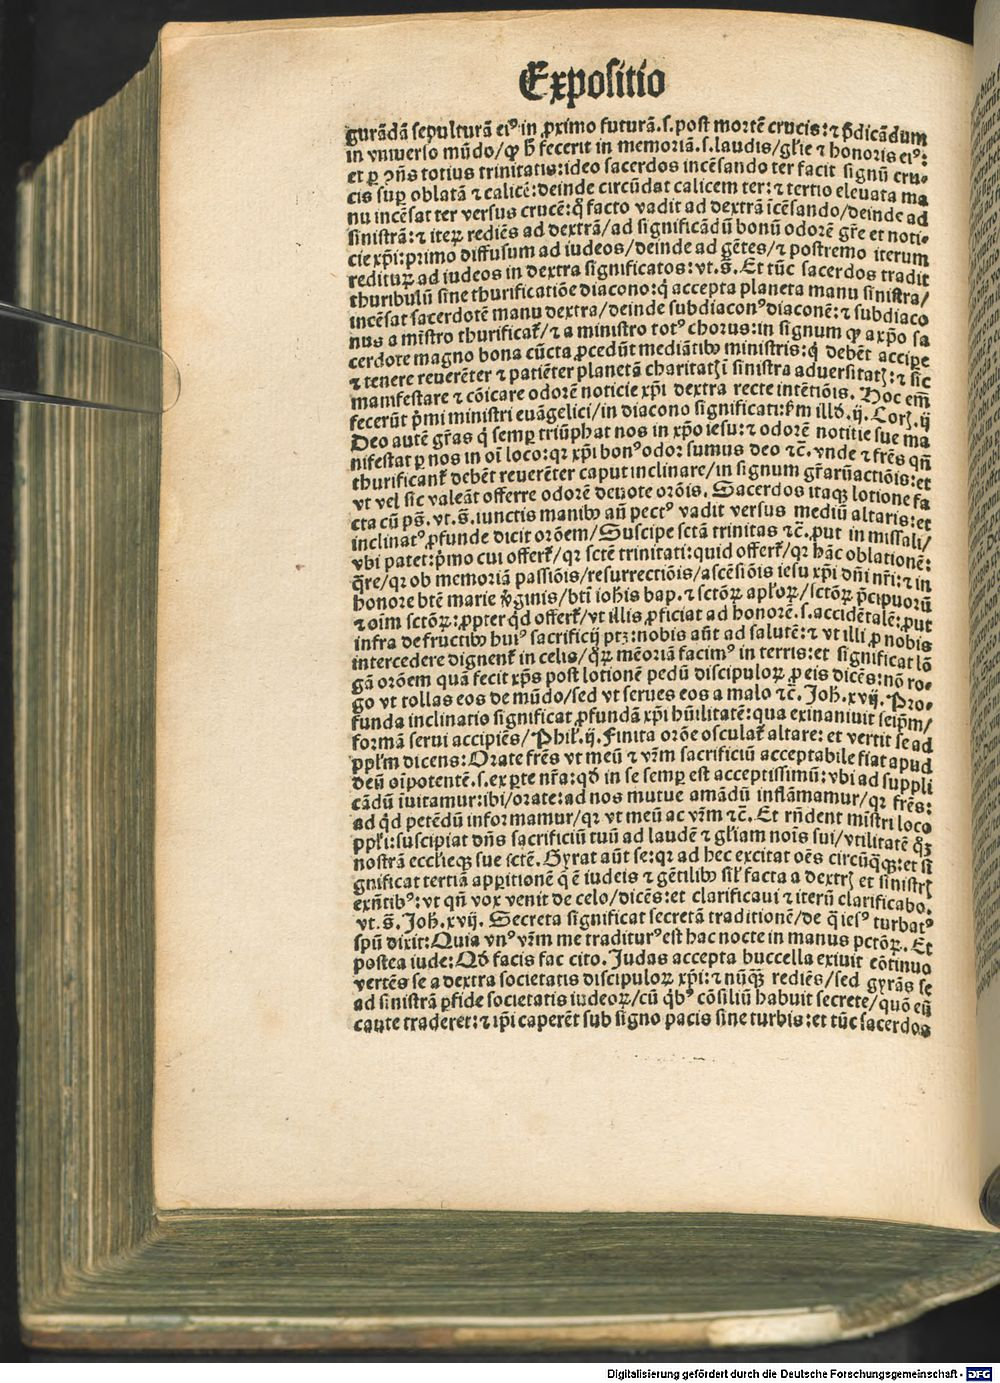 Expositio
gurādā sepulturā eiꝰ in ꝓximo futurā.s.post mortē crucis:⁊ p̄dicādum
in vniuerso mūdo/ꝙ h̄ fecerit in memoriā.s.laudis/gl̄ie ⁊ honoris eiꝰ:
et ꝑ ꝯn̄s totius trinitatis:ideo sacerdos incēsando ter facit signū cru⸗
cis suꝑ oblatā ⁊ calicē:deinde circūdat calicem ter:⁊ tertio eleuata ma
nu incēsat ter versus crucē:q̊ facto vadit ad dextrā īcēsando/deinde ad
sinistrā:⁊ iteꝝ rediēs ad dextrā/ad significādū bonū odorē gr̄e et noti⸗
cie xp̄i:primo diffusum ad iudeos/deinde ad gētes/⁊ postremo iterum
redituꝝ ad iudeos in dextra significatos:vt.s̄. Et tūc sacerdos tradit
thuribulū sine thurificatiōe diacono:q̇ accepta planeta manu sinistra/
incēsat sacerdotē manu dextra/deinde subdiaconꝰ diaconē:⁊ subdiaco
nus a mīstro thurificat᷑/⁊ a ministro totꝰ chorus:in signum ꝙ a xp̄o sa
cerdote magno bona cūcta ꝓcedūt mediātibꝰ ministris:q̇ debēt accipe
⁊ tenere reuerēter ⁊ patiēter planetā charitatꝭ ī sinistra aduersitatꝭ:⁊ sic
manifestare ⁊ cōicare odorē noticie xp̄i dextra recte intētiōis. Hoc em̄
fecerūt p̄mi ministri euāgelici/in diacono significati:ẜm illd̓.ij. Corꝭ.ij
Deo autē gr̄as q̇ semꝑ triūphat nos in xp̄o iesu:⁊ odorē notitie sue ma
nifestat ꝑ nos in oī loco:qꝛ xp̄i bonꝰ odoꝛ sumus deo ⁊c̄. vnde ⁊ fr̄es qn̄
thurificant᷑ debēt reuerēter caput inclinare/in signum gr̄arūactiōis:et
vt vel sic valeāt offerre odorē deuote orōis. Sacerdos itaqꝫ lotione fa
cta cū ps̄. vt.s̄. iunctis manibꝰ an̄ pectꝰ vadit versus mediū altaris:et
inclinatꝰ ꝓfunde dicit orōem/Suscipe sctā trinitas ⁊c̄. ꝓut in missali/
vbi patet:p̄mo cui offert᷑/qꝛ sctē trinitati:quid offert᷑/qꝛ hāc oblationē:
q̄re/qꝛ ob memoriā passiōis/resurrectiōis/ascēsiōis iesu xp̄i dn̄i nr̄i:⁊ in
honore btē marie ꝟginis/btī ioh̄is bap. ⁊ sctōꝝ apl̓oꝝ/sctōꝝ p̄cipuorū
⁊ oīm sctōꝝ:ꝓpter qd̓ offert᷑/vt illis ꝓficiat ad honorē.s.accidētalē:ꝓut
infra de fructibꝰ huiꝰ sacrificij ptꝫ:nobis aūt ad salutē:⁊ vt illi ꝓ nobis
intercedere dignent᷑ in celis/q̊ꝝ mēoriā facimꝰ in terris:et significat lō
gā orōem quā fecit xp̄s post lotionē pedū discipuloꝝ ꝓ eis dicēs:nō ro⸗
go vt tollas eos de mūdo/sed vt serues eos a malo ⁊c̄. Joh̄.xvij. Pro⸗
funda inclinatio significat ꝓfundā xp̄i hūilitatē:qua exinaniuit seip̄m/
formā serui accipiēs/Phil̓.ij. Finita orōe osculat᷑ altare: et vertit se ad
ppl̓m dicens:Orate fr̄es vt meū ⁊ vr̄m sacrificiū acceptabile fiat apud
deū oīpotentē.s.ex ꝑte nr̄a:qd̓ in se semꝑ est acceptissimū:vbi ad suppli
cādū īuitamur:ibi/orate:ad nos mutue amādū inflāmamur/qꝛ fr̄es:
ad qd̓ petēdū informamur/qꝛ vt meū ac vr̄m ⁊c̄. Et rn̄dent mīstri loco
ppl̓i:suscipiat dn̄s sacrificiū tuū ad laudē ⁊ gl̓iam noīs sui/vtilitatē q̊ꝫ
nostrā eccl̓ieqꝫ sue sctē. Gyrat aūt se:qꝛ ad hec excitat oēs circūq̄qꝫ:et si
gnificat tertiā apparitionē q̄ ē iudeis ⁊ gētilibꝰ sil̓ facta a dextrꝭ et sinistrꝭ
exn̄tibꝰ:vt qn̄ vox venit de celo/dicēs:et clarificaui ⁊ iterū clarificabo.
vt.s̄.Joh̄.xvij. Secreta significat secretā traditionē/de q̄ iesꝰ turbatꝰ
spū dixit:Quia vnꝰ vr̄m me traditurꝰ est hac nocte in manus pctōꝝ. Et
postea iude:Qd̓ facis fac cito. Judas accepta buccella exiuit cōtinuo
vertēs se a dextra societatis discipuloꝝ xp̄i:⁊ nūqꝫ rediēs/sed gyrās se
ad sinistrā ꝑfide societatis iudeoꝝ/cū qb̓ꝰ cōsiliū habuit secrete/quō eū
caute traderet:⁊ ip̄i caperēt sub signo pacis sine turbis:et tūc sacerdos
Digitalisierung gefördert durch die Deutsche Forschungsgemeinschaft - DFG